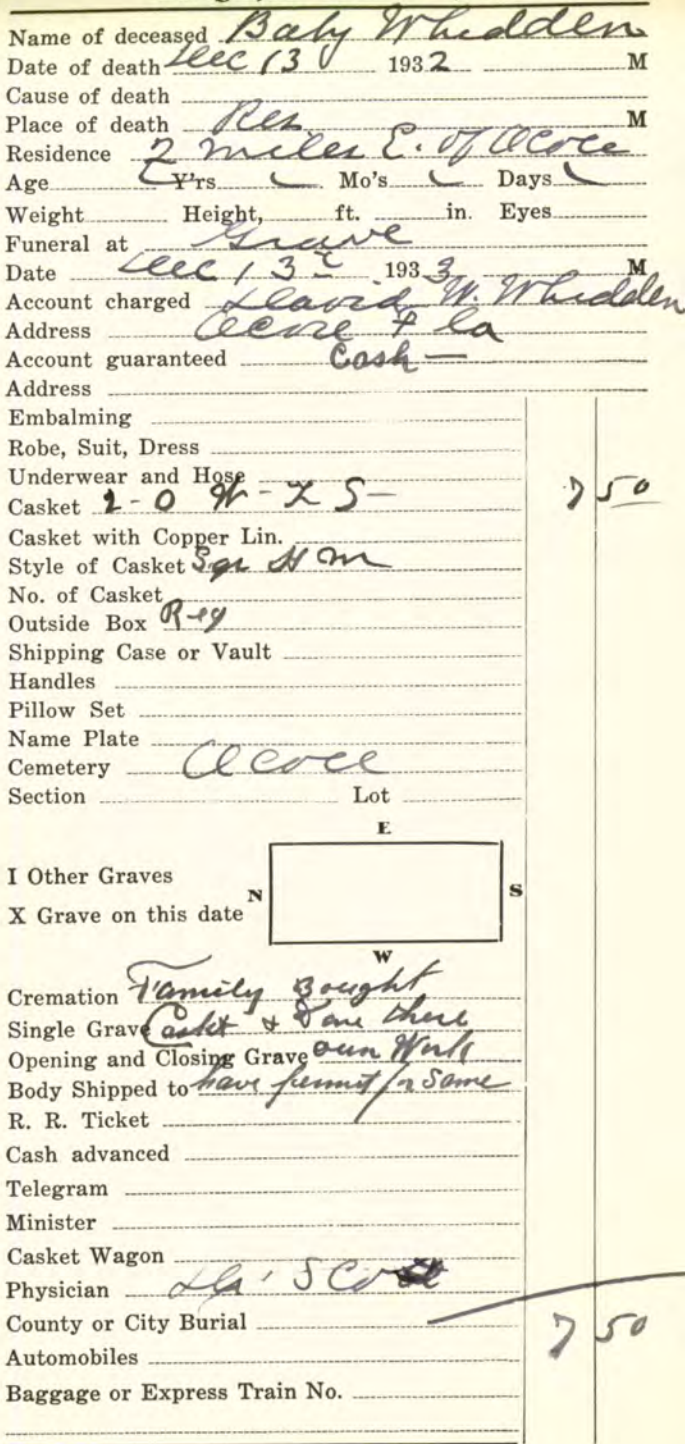 Name of deceased Baby Whidden
Date of death Dec 13 1932 M
Cause of death
Place of death Res M
Residence 2 miles E. of Ocoee
Age Y'rs Mo's Days
Weight Height, ft. in. Eyes
Funeral at Grave
Date Dec 13 1933 M
Account charged David W. Whidden
Address Ocoee Fla
Account guaranteed Cash —
Address
Embalming
Robe, Suit, Dress
Underwear and Hose
Casket 2-0 7 50
Casket with Copper Lin.
Style of Casket Sqr
No. of Casket
Outside Box Reg
Shipping Case or Vault
Handles
Pillow Set
Name Plate
Cemetery Ocoee
Section Lot
E
I Other Graves
N S
X Grave on this date
W
Cremation Family Bought
Single Grave Casket & Done there
Opening and Closing Grave own Work
Body Shipped to have permit for Same
R. R. Ticket
Cash advanced
Telegram
Minister
Casket Wagon
Physician Dr. Scott
County or City Burial 7 50
Automobiles
Baggage or Express Train No.